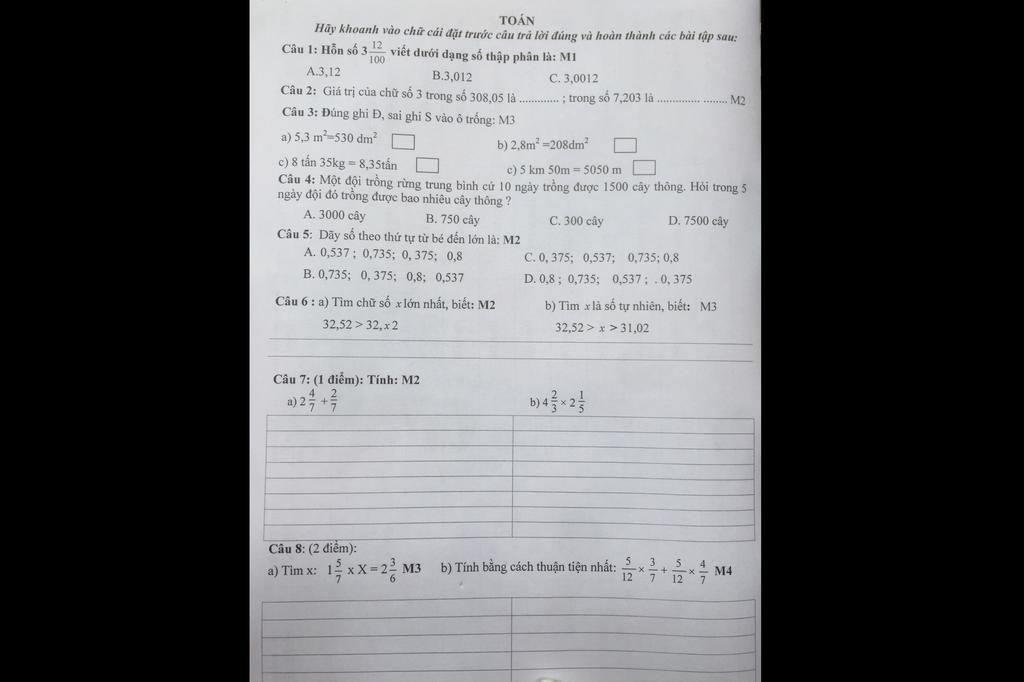 TOÁN
Hãy khoanh vào chữ cái đặt trước câu trả lời đúng và hoàn thành các bài tập sau:
Câu 1: Hỗn số 3 12/100 viết dưới dạng số thập phân là: M1
A.3,12 B.3,012 C. 3,0012
Câu 2: Giá trị của chữ số 3 trong số 308,05 là ............. ; trong số 7,203 là .............. ........ M2
Câu 3: Đúng ghi Đ, sai ghi S vào ô trống: M3
a) 5,3 m²=530 dm² b) 2,8m² =208dm²
c) 8 tấn 35kg = 8,35tấn c) 5 km 50m = 5050 m
Câu 4: Một đội trồng rừng trung bình cứ 10 ngày trồng được 1500 cây thông. Hỏi trong 5
ngày đội đó trồng được bao nhiêu cây thông ?
A. 3000 cây B. 750 cây C. 300 cây D. 7500 cây
Câu 5: Dãy số theo thứ tự từ bé đến lớn là: M2
A. 0,537 ; 0,735; 0, 375; 0,8 C. 0, 375; 0,537; 0,735; 0,8
B. 0,735; 0, 375; 0,8; 0,537 D. 0,8 ; 0,735; 0,537 ; . 0, 375
Câu 6 : a) Tìm chữ số x lớn nhất, biết: M2 b) Tìm x là số tự nhiên, biết: M3
32,52 > 32, x 2 32,52 > x > 31,02
Câu 7: (1 điểm): Tính: M2
a) 2 4/7 + 2/7 b) 4 2/3 × 2 1/5
Câu 8: (2 điểm):
a) Tìm x: 1 5/7 x X = 2 3/6 M3 b) Tính bằng cách thuận tiện nhất: 5/12 × 3/7 + 5/12 × 4/7 M4